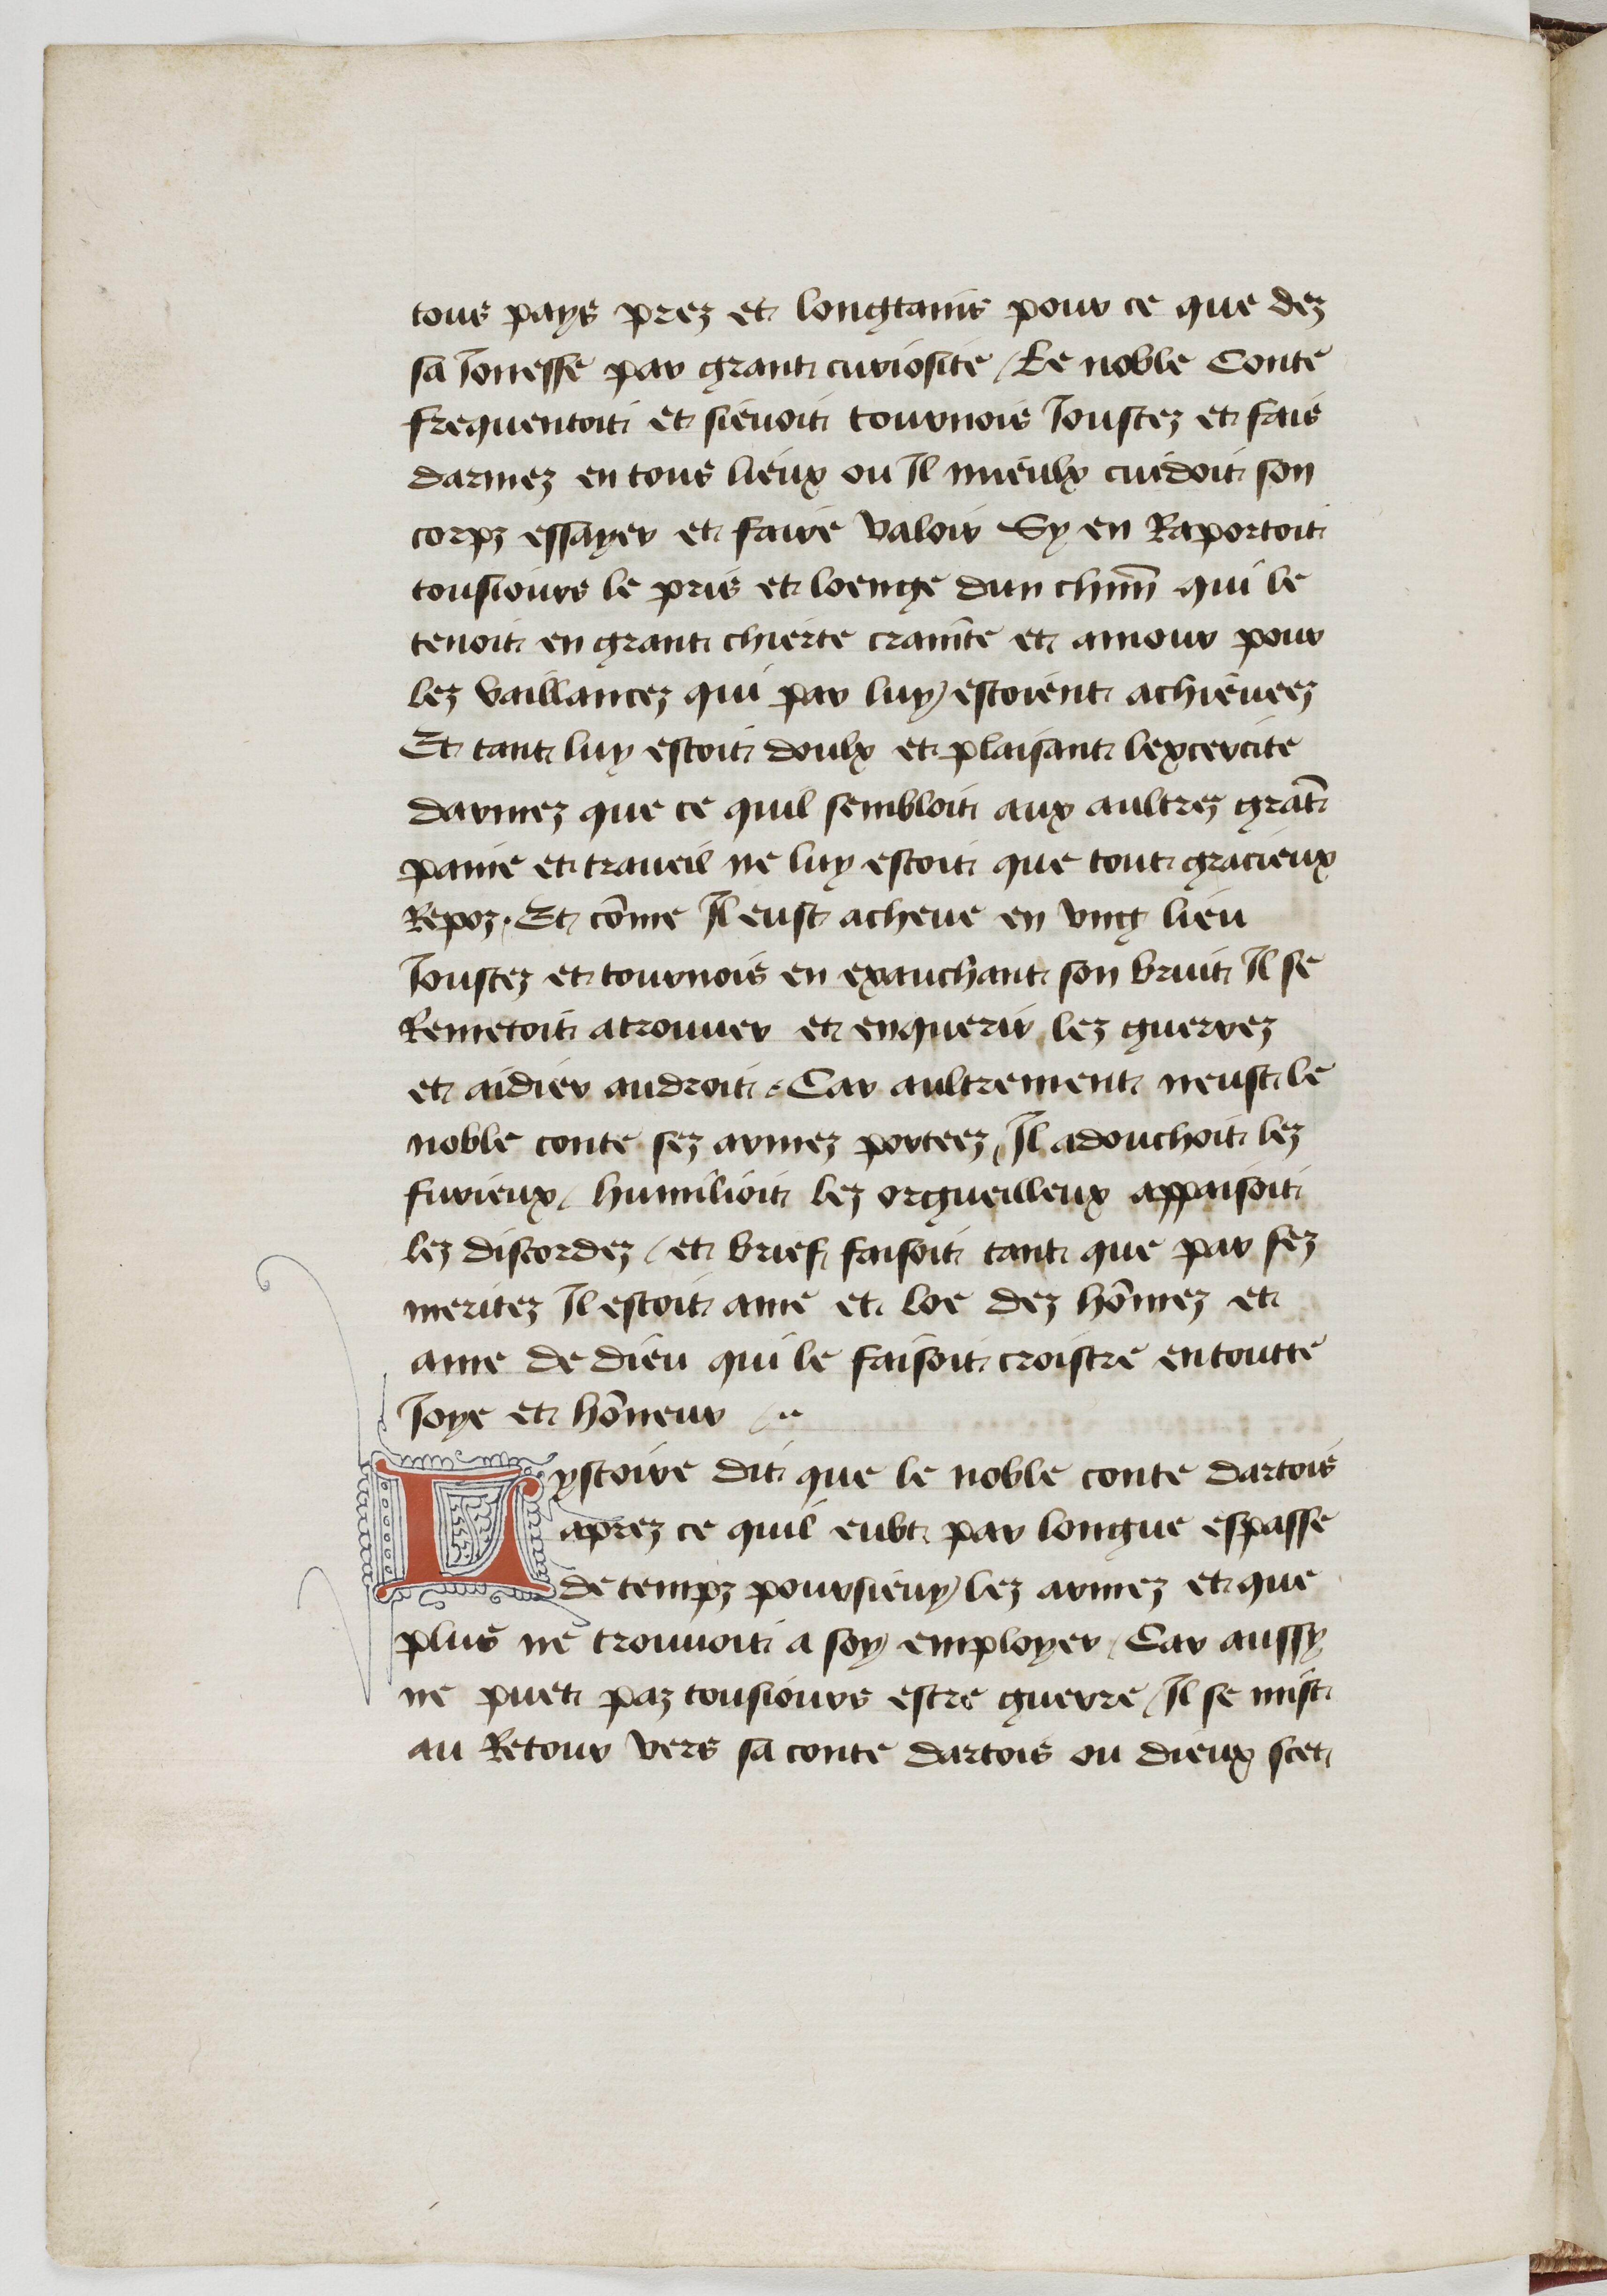 tous pays prez et longtains pour ce que dez
sa Jonesse par grant curiosite / Le noble Conte
frequentoit et sieuoit tournois Joustez et fais
darmez en tous lieux ou Il mieulx cuidoit son
corpz essayer et faire valoir Sy en Raportoit
tousiours le pris et loenge dun chun̄ qui le
tenoit en grant chierte crainte et amour pour
lez vaillancez qui par luy estoient achieueez
Et tant luy estoit doulx et plaisant lexcercite
darmez que ce quil sembloit aux aultrez grāt
paine et traueil ne luy estoit que tout gracieux
Repoz. Et cōme Il eust acheue en vng lieu
Joustez et tournois en exauchant son bruit Il se
Remetoit a trouuer et enquerir lez guerrez
et aidier au droit. Car aultrement neust le
noble conte sez armez porteez, Il adouchoit lez
furieux / humilioit lez orgueilleux appaisoit
lez discordez / et brief faisoit tant que par sez
meritez Il estoit ame et loe dez hōmez et
ame de dieu qui le faisoit croistre en toutte
Joye et hōneur /..
Lystoire dit que le noble conte dartois
aprez ce quil eubt par longue espasse
de tempz poursieuy lez armez et que
plus ne trouuoit a soy employer / Car aussy
ne puet paz tousiours estre guerre / Il se mist
au Retour vers sa conte dartois ou dieux scet